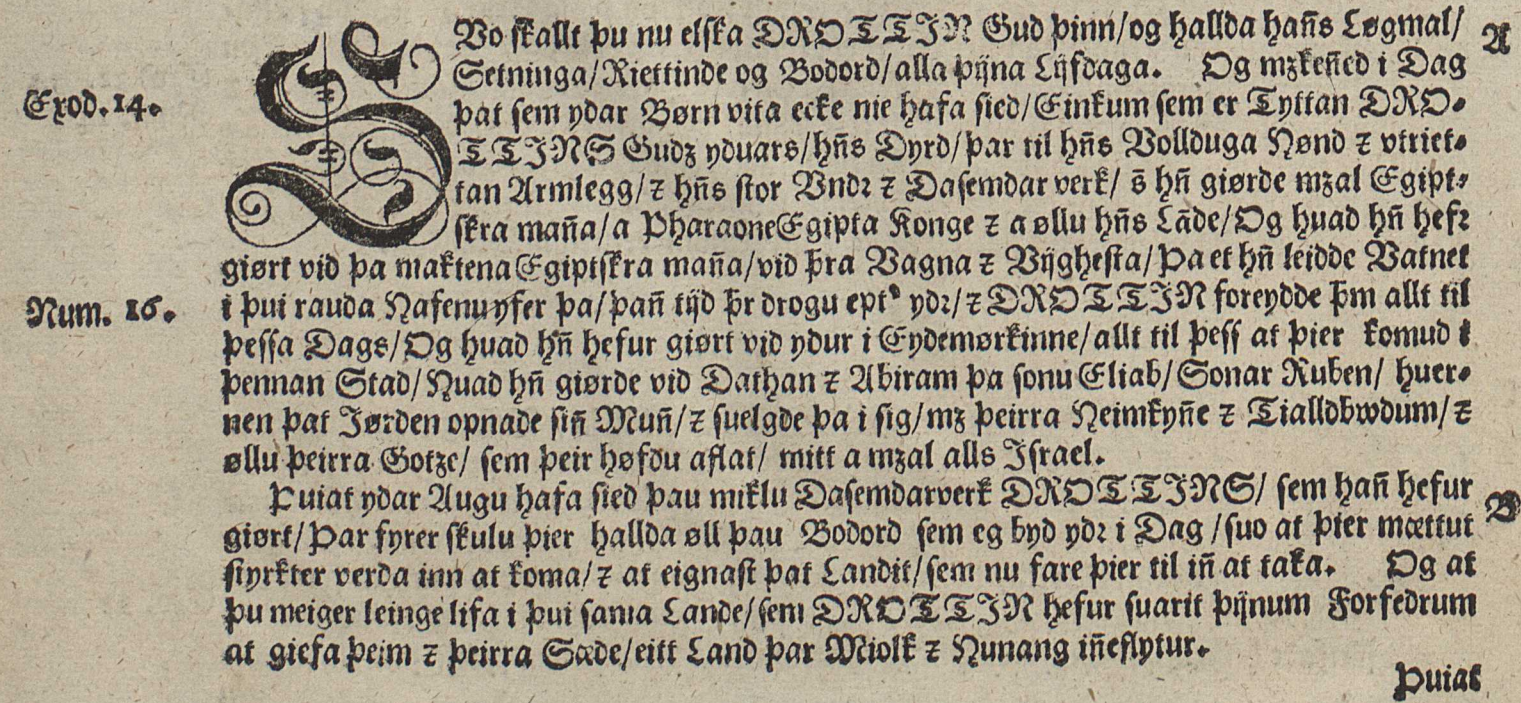 SVo skallt þu nu elska DROTTIN Gud þinn/og hallda hañs Løgmal/ A
Setninga/Riettinde og Bodord/alla þijna Lijfdaga. Og mzkeñed i Dag
Exod. 14. þat sem ydar Børn vita ecke nie hafa sied/Einkum sem er Tyttan DRO-
TTINS Gudz yduars/hñs Dyrd/þar til hñs Vollduga Hønd ꝛ vtriet-
tan Armlegg/ꝛ hñs stor Vndꝛ ꝛ Dasemdar verk/ s̃ hñ giørde mzal Egipt-
skra maña/a PharaoneEgipta Konge ꝛ a øllu hñs Lãde/Og huad hñ hefꝛ
giørt vid þa maktena Egiptskra maña/vid þ̃ra Vagna ꝛ Vijghesta/Þa et hñ leidde Vatnet
Num. 16. i þui rauda Hafenu yfer þa/þañ tijd þ̃r drogu ept' ydꝛ/ꝛ DROTTIN foreydde þ̃m allt til
þessa Dags/Og huad hñ hefur giørt vid ydur i Eydemørkinne/allt til þess at þier komud i
þennan Stad/Huad hñ giørde vid Dathan ꝛ Abiram þa sonu Eliab/Sonar Ruben/ huer-
nen þat Jørden opnade siñ Muñ/ꝛ suelgde þa i sig/mz þeirra Heimkyñe ꝛ Tialldbwdum/ꝛ
øllu þeirra Gotze/ sem þeir høfdu aflat/ mitt a mzal alls Israel.
Þuiat ydar Augu hafa sied þau miklu Dasemdarverk DROTTINS/ sem hañ hefur B
giørt/Þar fyrer skulu þier hallda øll þau Bodord sem eg byd ydꝛ i Dag /suo at þier mættut
styrkter verda inn at koma/ꝛ at eignast þat Landit/sem nu fare þier til iñ at taka. Og at
þu meiger leinge lifa i þui sama Lande/sem DROTTIN hefur suarit þijnum Forfedrum
at giefa þeim ꝛ þeirra Sæde/eitt Land þar Miolk ꝛ Hunang iñeflytur.
Þuiat